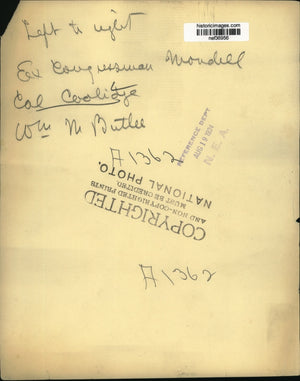 historicimages.com
nef36956
Left to right
Ex Congressman Mondell
Cal Coolidge
Wm M Butler
REFERENCE DEPT
AUG 19 1924
N. E. A.
A1362
COPYRIGHTED
AND NON-COPYRIGHTED PRINTS
MUST BE CREDITED
NATIONAL PHOTO.
A1362